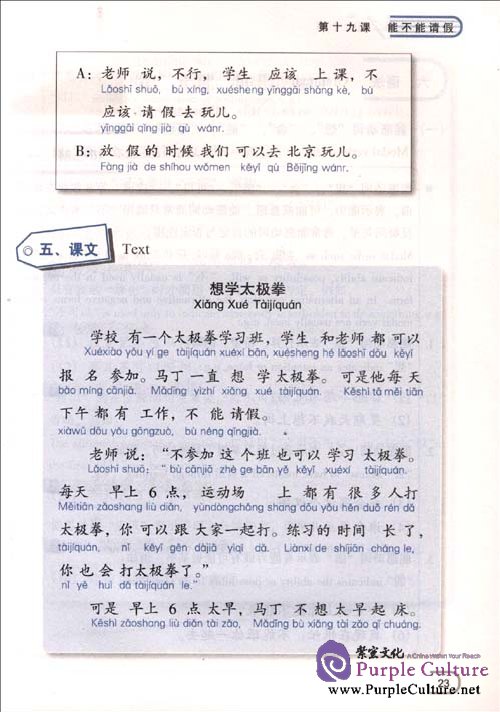 第十九课 能不能请假
A: 老师 说, 不行, 学生 应该 上 课, 不
Lǎoshī shuō, bù xíng, xuésheng yīnggāi shàng kè, bù
应该 请 假 去 玩儿。
yīnggāi qǐng jià qù wánr.
B: 放 假 的 时候 我们 可以 去 北京 玩儿。
Fàng jià de shíhou wǒmen kěyǐ qù Běijīng wánr.
五、课文 Text
想学太极拳
Xiǎng Xué Tàijíquán
学校 有一个太极拳学习班, 学生 和老师 都 可以
Xuéxiào yǒu yí ge tàijíquán xuéxí bān, xuésheng hé lǎoshī dōu kěyǐ
报 名 参加。马丁 一直 想 学太极拳。可是他每 天
bào míng cānjiā. Mǎdīng yìzhí xiǎng xué tàijíquán. Kěshì tā měi tiān
下午 都 有 工作, 不 能 请假。
xiàwǔ dōu yǒu gōngzuò, bù néng qǐngjià.
老师 说: “不参加 这 个 班 也 可以 学习 太极拳。
Lǎoshī shuō: “bù cānjiā zhè ge bān yě kěyǐ xuéxí tàijíquán.
每天 早上 6 点, 运动场 上 都 有 很 多 人打
Měitiān zǎoshang liù diǎn, yùndòngchǎng shang dōu yǒu hěn duō rén dǎ
太极拳, 你 可以 跟 大家一起打。练习的 时间 长 了,
tàijíquán, nǐ kěyǐ gēn dàjiā yìqǐ dǎ. Liànxí de shíjiān cháng le,
你 也 会 打太极拳了。”
nǐ yě huì dǎ tàijíquán le.”
可是 早上 6 点太早, 马丁 不 想 太早 起 床。
Kěshì zǎoshang liù diǎn tài zǎo, Mǎdīng bù xiǎng tài zǎo qǐ chuáng.
紫宸文化 A China Within Your Reach
Purple Culture
23
www.PurpleCulture.net